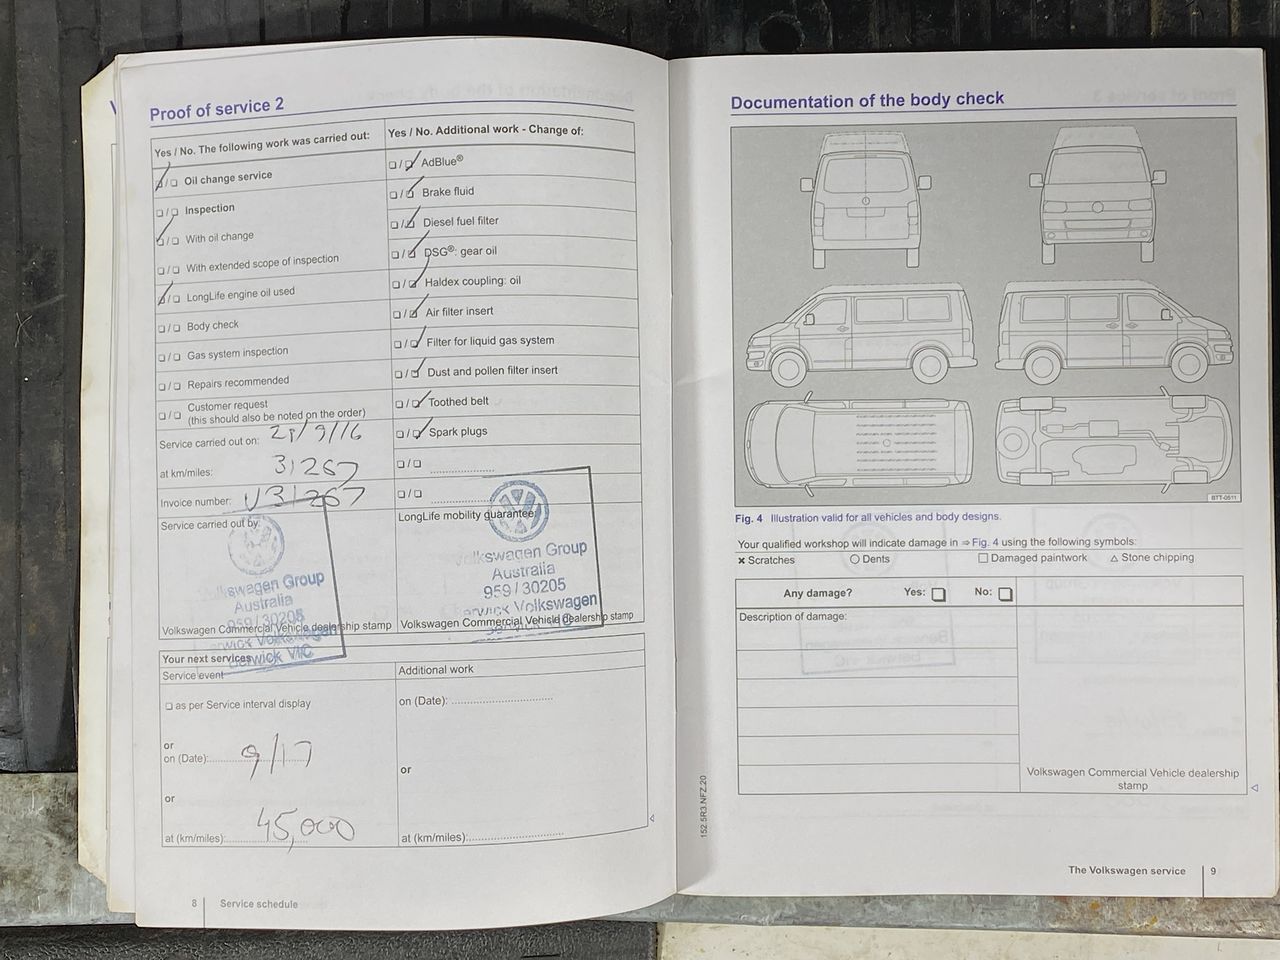 Proof of service 2
Yes / No. The following work was carried out:
❏/❏ Oil change service
❏/❏ Inspection
❏/❏ With oil change
❏/❏ With extended scope of inspection
❏/❏ LongLife engine oil used
❏/❏ Body check
❏/❏ Gas system inspection
❏/❏ Repairs recommended
❏/❏ Customer request
(this should also be noted on the order)
Service carried out on: 29/9/16
at km/miles: 31267
Invoice number: V31267
Service carried out by:
Volkswagen Group
Australia
959/30205
Berwick Volkswagen
Berwick VIC
Volkswagen Commercial Vehicle dealership stamp
Yes / No. Additional work - Change of:
❏/❏ AdBlue®
❏/❏ Brake fluid
❏/❏ Diesel fuel filter
❏/❏ DSG®: gear oil
❏/❏ Haldex coupling: oil
❏/❏ Air filter insert
❏/❏ Filter for liquid gas system
❏/❏ Dust and pollen filter insert
❏/❏ Toothed belt
❏/❏ Spark plugs
❏/❏ ....................
❏/❏ ....................
LongLife mobility guarantee:
Volkswagen Group
Australia
959/30205
Berwick Volkswagen
Berwick VIC
Volkswagen Commercial Vehicle dealership stamp
Your next services
Service event
❏ as per Service interval display
or
on (Date): 9/17
or
at (km/miles): 45,000
Additional work
on (Date): ....................
or
at (km/miles): ....................
8 Service schedule
Documentation of the body check
BTT-0511
Fig. 4 Illustration valid for all vehicles and body designs.
Your qualified workshop will indicate damage in ⇒ Fig. 4 using the following symbols:
✖ Scratches ○ Dents □ Damaged paintwork △ Stone chipping
Any damage? Yes: ❏ No: ❏
Description of damage:
Volkswagen Commercial Vehicle dealership
stamp
152.5R3.NFZ.20
The Volkswagen service 9